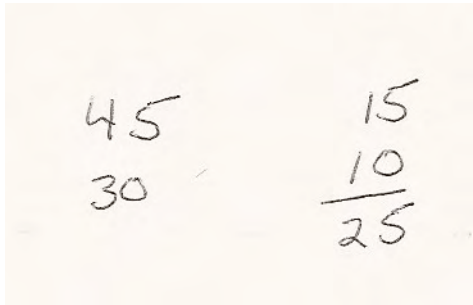 45
30
15
10
25